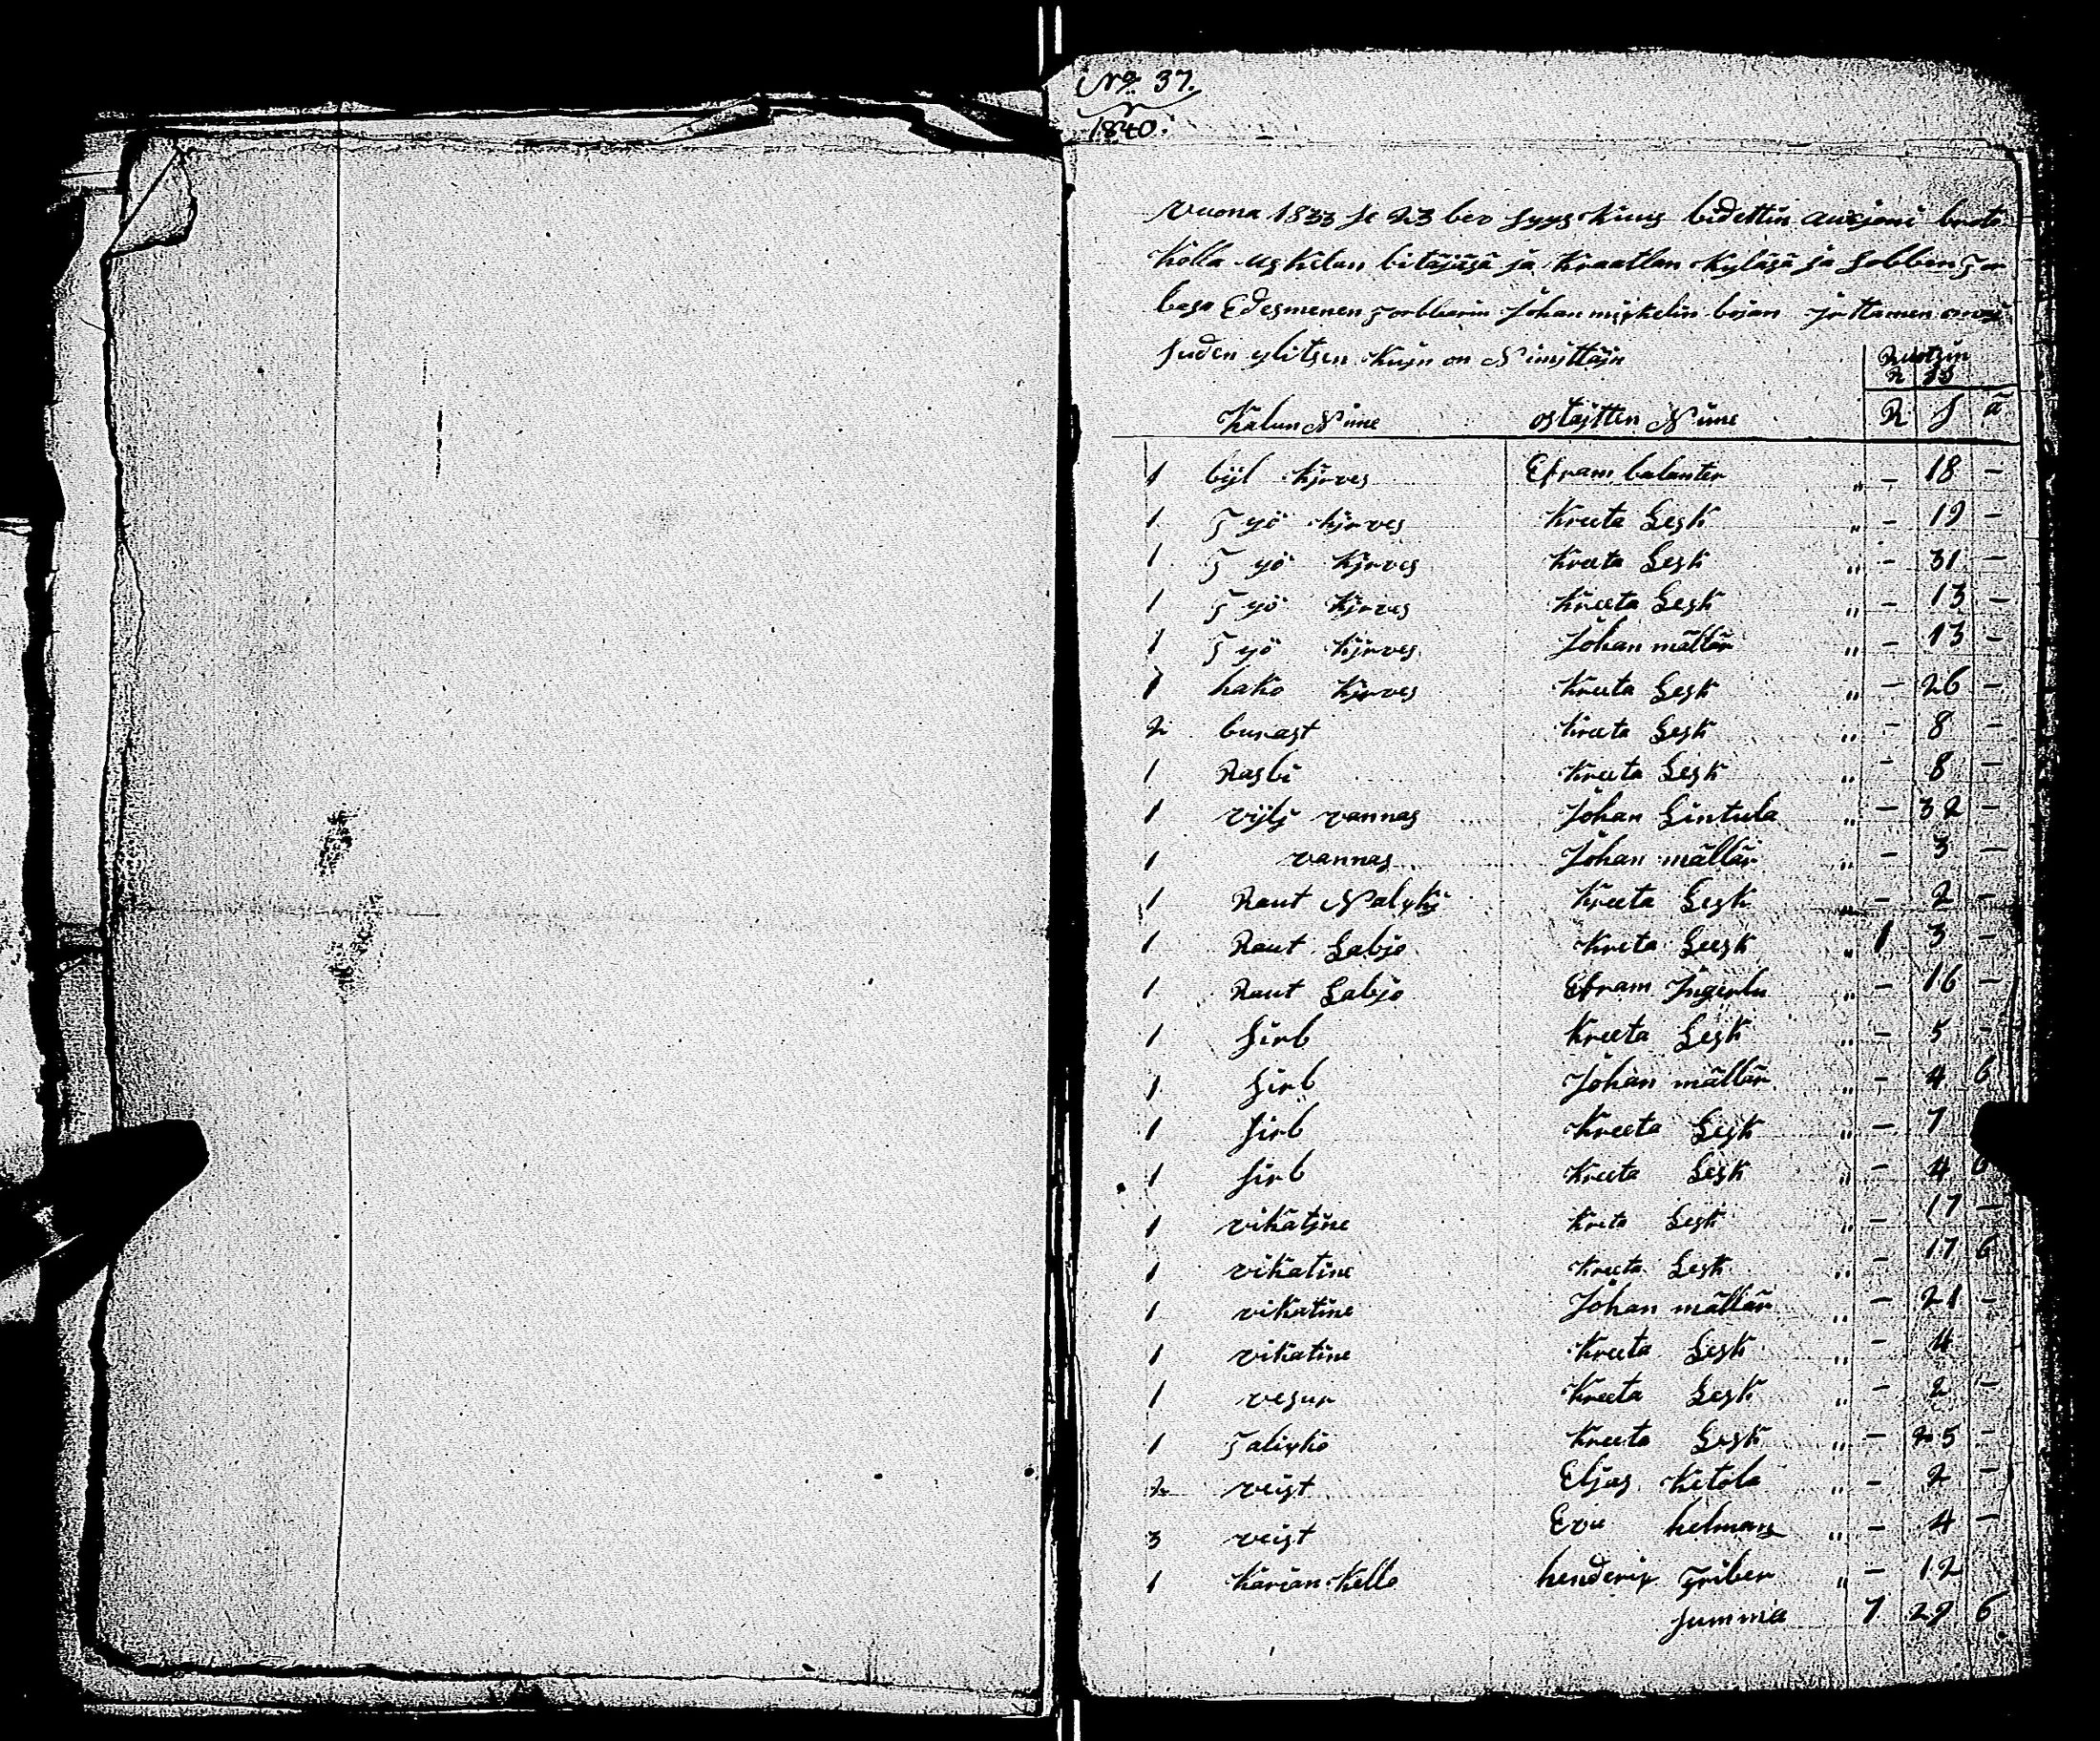 No 37.
1840.
Vuona 1833 se 23 bev syys kuus bidettin aucjoni broto
kolla uskelan bitäjäsä ja Kraatlan kyläsä ja
basa Edesmenen Torbbarin Johan mickelin bojan jättämen
suden ylitsen kujn on Nimjttäjn
Ruotzin
R ss
Kalun Nime ostajtten Nime R s ä
1 bijl kjrves Efram balanter „ - 18 -
1 Työ kjrves Kreeta Lesk „ - 19 -
1 Työ kjrves Kreeta Lesk „ - 31 -
1 Työ kjrves Kreeta Lesk „ - 13 -
1 Työ kjrves Johan mällär „ - 13 -
1 hako kjrves Kreeta Lesk „ - 26 -
2 burast Kreeta Lesk „ - 8 -
1 Rasbi Kreeta Lesk „ - 8 -
1 vijlj vannas Johan Lintula „ - 32 -
1 vannas Johan mällär „ - 3 -
1 Raut Kreeta Lesk „ - 2 -
1 Raut Labjo Kreta Leesk „ 1 3 -
1 Raut Labjo Efram „ - 16 -
1 sirb Kreeta Lesk „ - 5 -
1 sirb Johan mällär „ - 4 6
1 sirb Kreeta Lesk „ - 7
1 sirb Kreeta Lesk „ - 4 6
1 vikatjne Kreta Lesk „ - 17 -
1 vikatine Kreeta Lesk „ - 17 6
1 vikatine Johan mällär „ - 21 -
1 vikatine Kreeta Lesk „ - 4
1 vesur Kreeta Lesk „ - 2 -
1 Talikko Kreeta Lesk „ - 25 -
2 veist Eljas Ketola „ - 2 -
3 veist Eva helman „ - 4 -
1 karian kello henderik Friber „ - 12
summa 7 29 6